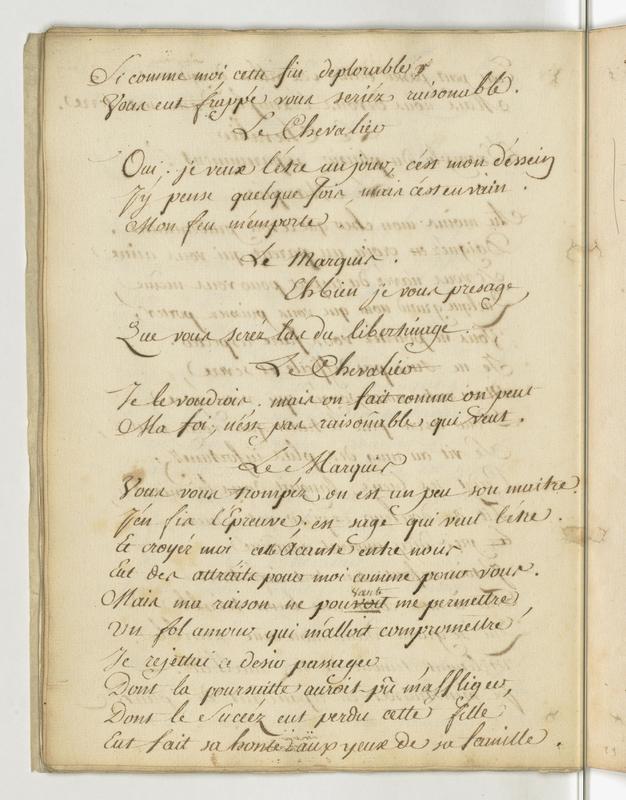 Si comme moi cette fin deplorable
Vous eut frappé vous seriéz raisonable.
Le Chevalier
Oui. je veux l'être un jour, c'est mon dessein
J'y pense quelque fois, mais c'est en vain.
Mon feu m'emporte
Le Marquis.
Eh bien je vous presage,
Que vous serez las du libertinage.
Le Chevalier
Je le voudrois. mais on fait comme on peut
Ma foi, n'ést pas raisonable qui veut.
Le Marquis
Vous vous trompéz on est un peu son maitre.
J'en fis l'Epreuve; est sage qui veut l'être.
Et croyéz moi cette Acante entre nous
Eut des attraits pour moi comme pour vous.
Mais ma raison ne pouvoit vant me permettre
Un fol amour qui m'alloit compromettre,
Je rejettai ce desir passager
Dont la poursuitte auroit pû m'affliger,
Dont le Succéz eut perdu cette fille
Eut fait sa honte aux yeux de sa famille.